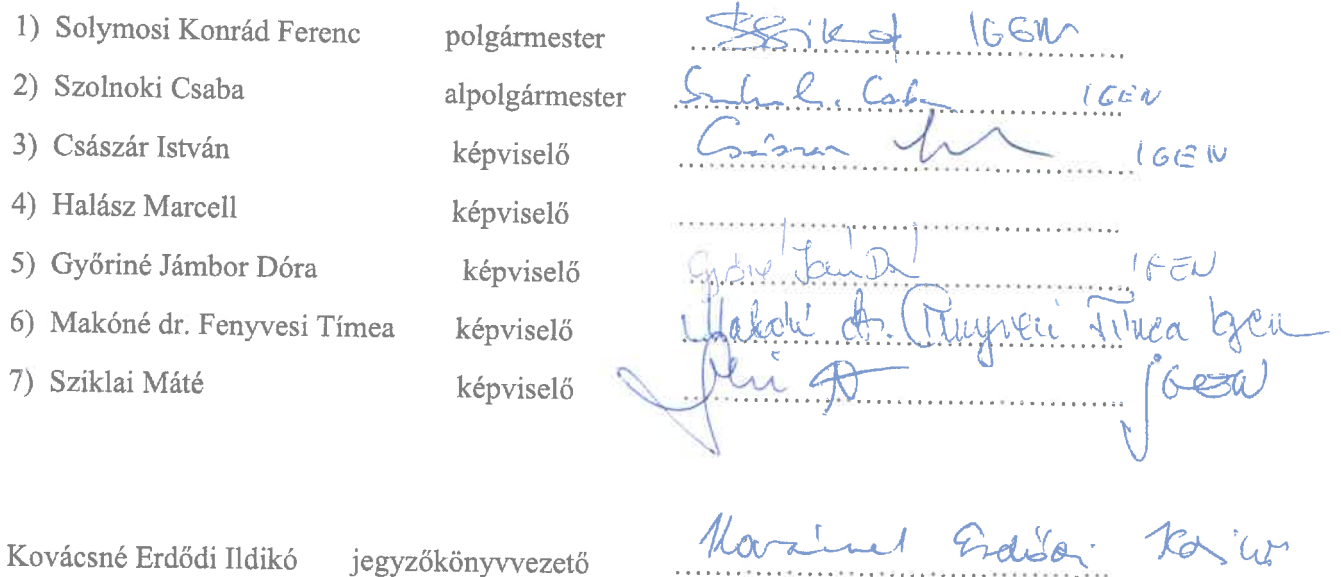 1) Solymosi Konrád Ferenc polgármester IGEN
2) Szolnoki Csaba alpolgármester Csaba IGEN
3) Császár István képviselő Császár IGEN
4) Halász Marcell képviselő
5) Győriné Jámbor Dóra képviselő IGEN
6) Makóné dr. Fenyvesi Tímea képviselő Makóné dr. Fenyvesi Tímea Igen
7) Sziklai Máté képviselő IGEN
Kovácsné Erdődi Ildikó jegyzőkönyvvezető Kovácsné Erdődi